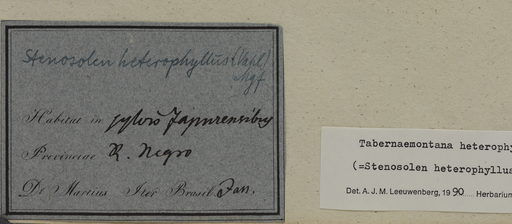 Stenosolen heterophyllus (Vahl)
Mgf
Habitat in sylvis Japurensibus
Provinciae R. Negro
Dr Martius Iter Brasil Jan.
Tabernaemontana heterophy
(=Stenosolen heterophyllus
Det. A. J. M. Leeuwenberg, 1990 ..... Herbarium